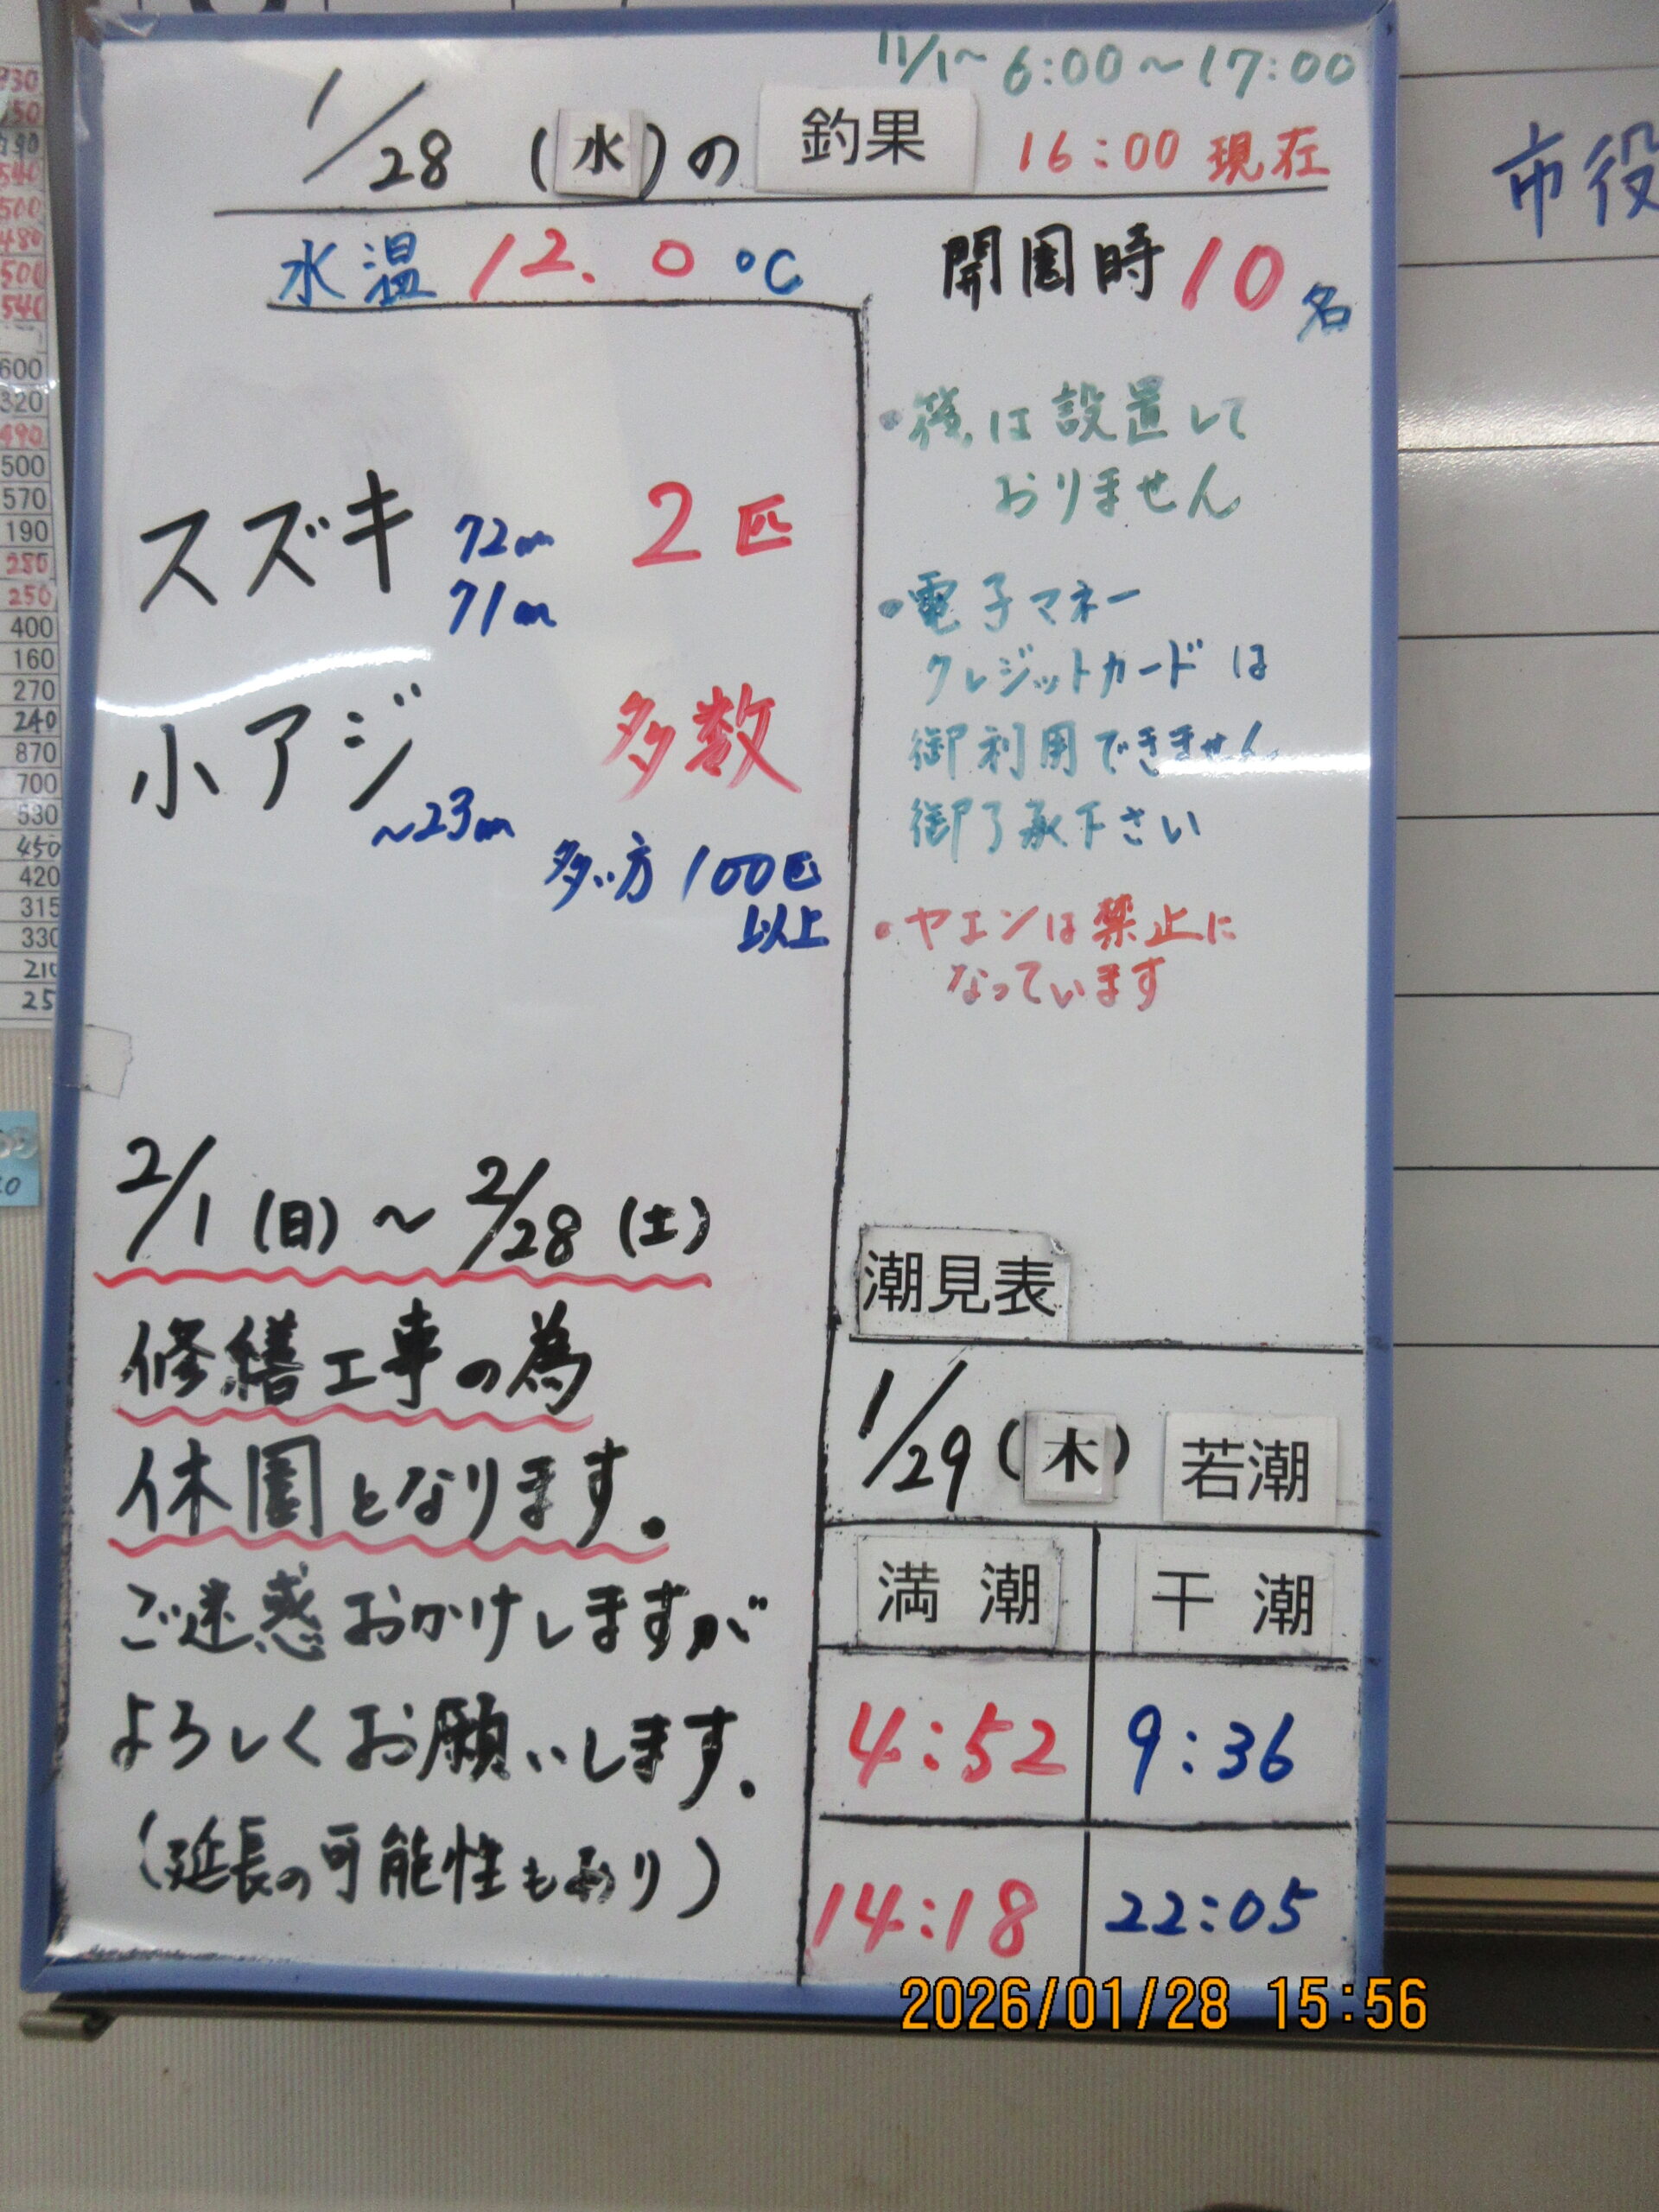 11/1~ 6:00~17:00
1/28 (水)の 釣果 16:00 現在
水温 12.0 ℃
開園時 10名
スズキ 72cm 2匹
71cm
小アジ 多数
~23cm
多い方 100匹
以上
2/1 (日) ~ 2/28 (土)
修繕工事の為
休園となります。
ご迷惑おかけしますが
よろしくお願いします。
(延長の可能性もあり)
・筏は設置して
おりません
・電子マネー
クレジットカードは
御利用できません
御了承下さい
・ヤエンは禁止に
なっています
潮見表
1/29 (木) 若潮
満潮 干潮
4:52 9:36
14:18 22:05
市役
600
320
490
500
570
190
280
250
400
160
270
240
870
700
530
450
420
315
330
210
25
2026/01/28 15:56